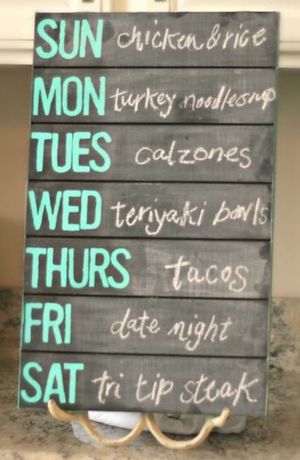 SUN chicken & rice
MON turkey noodle soup
TUES calzones
WED teriyaki bowls
THURS tacos
FRI date night
SAT tri tip steak